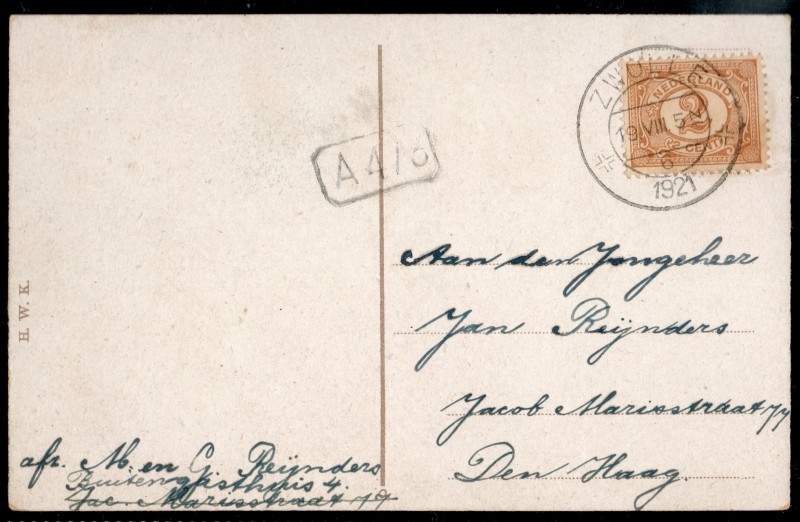 ZWOLLE
19 VIII 5-N
6
1921
NEDERLAND
2
2 CENT
A 4/6
H. W. K.
Aan den Jongeheer
Jan Reijnders
Jacob Marisstraat 77
Den Haag.
afz. M. en G. Reijnders
Buitengasthuis 4.
Jac. Marisstraat 79